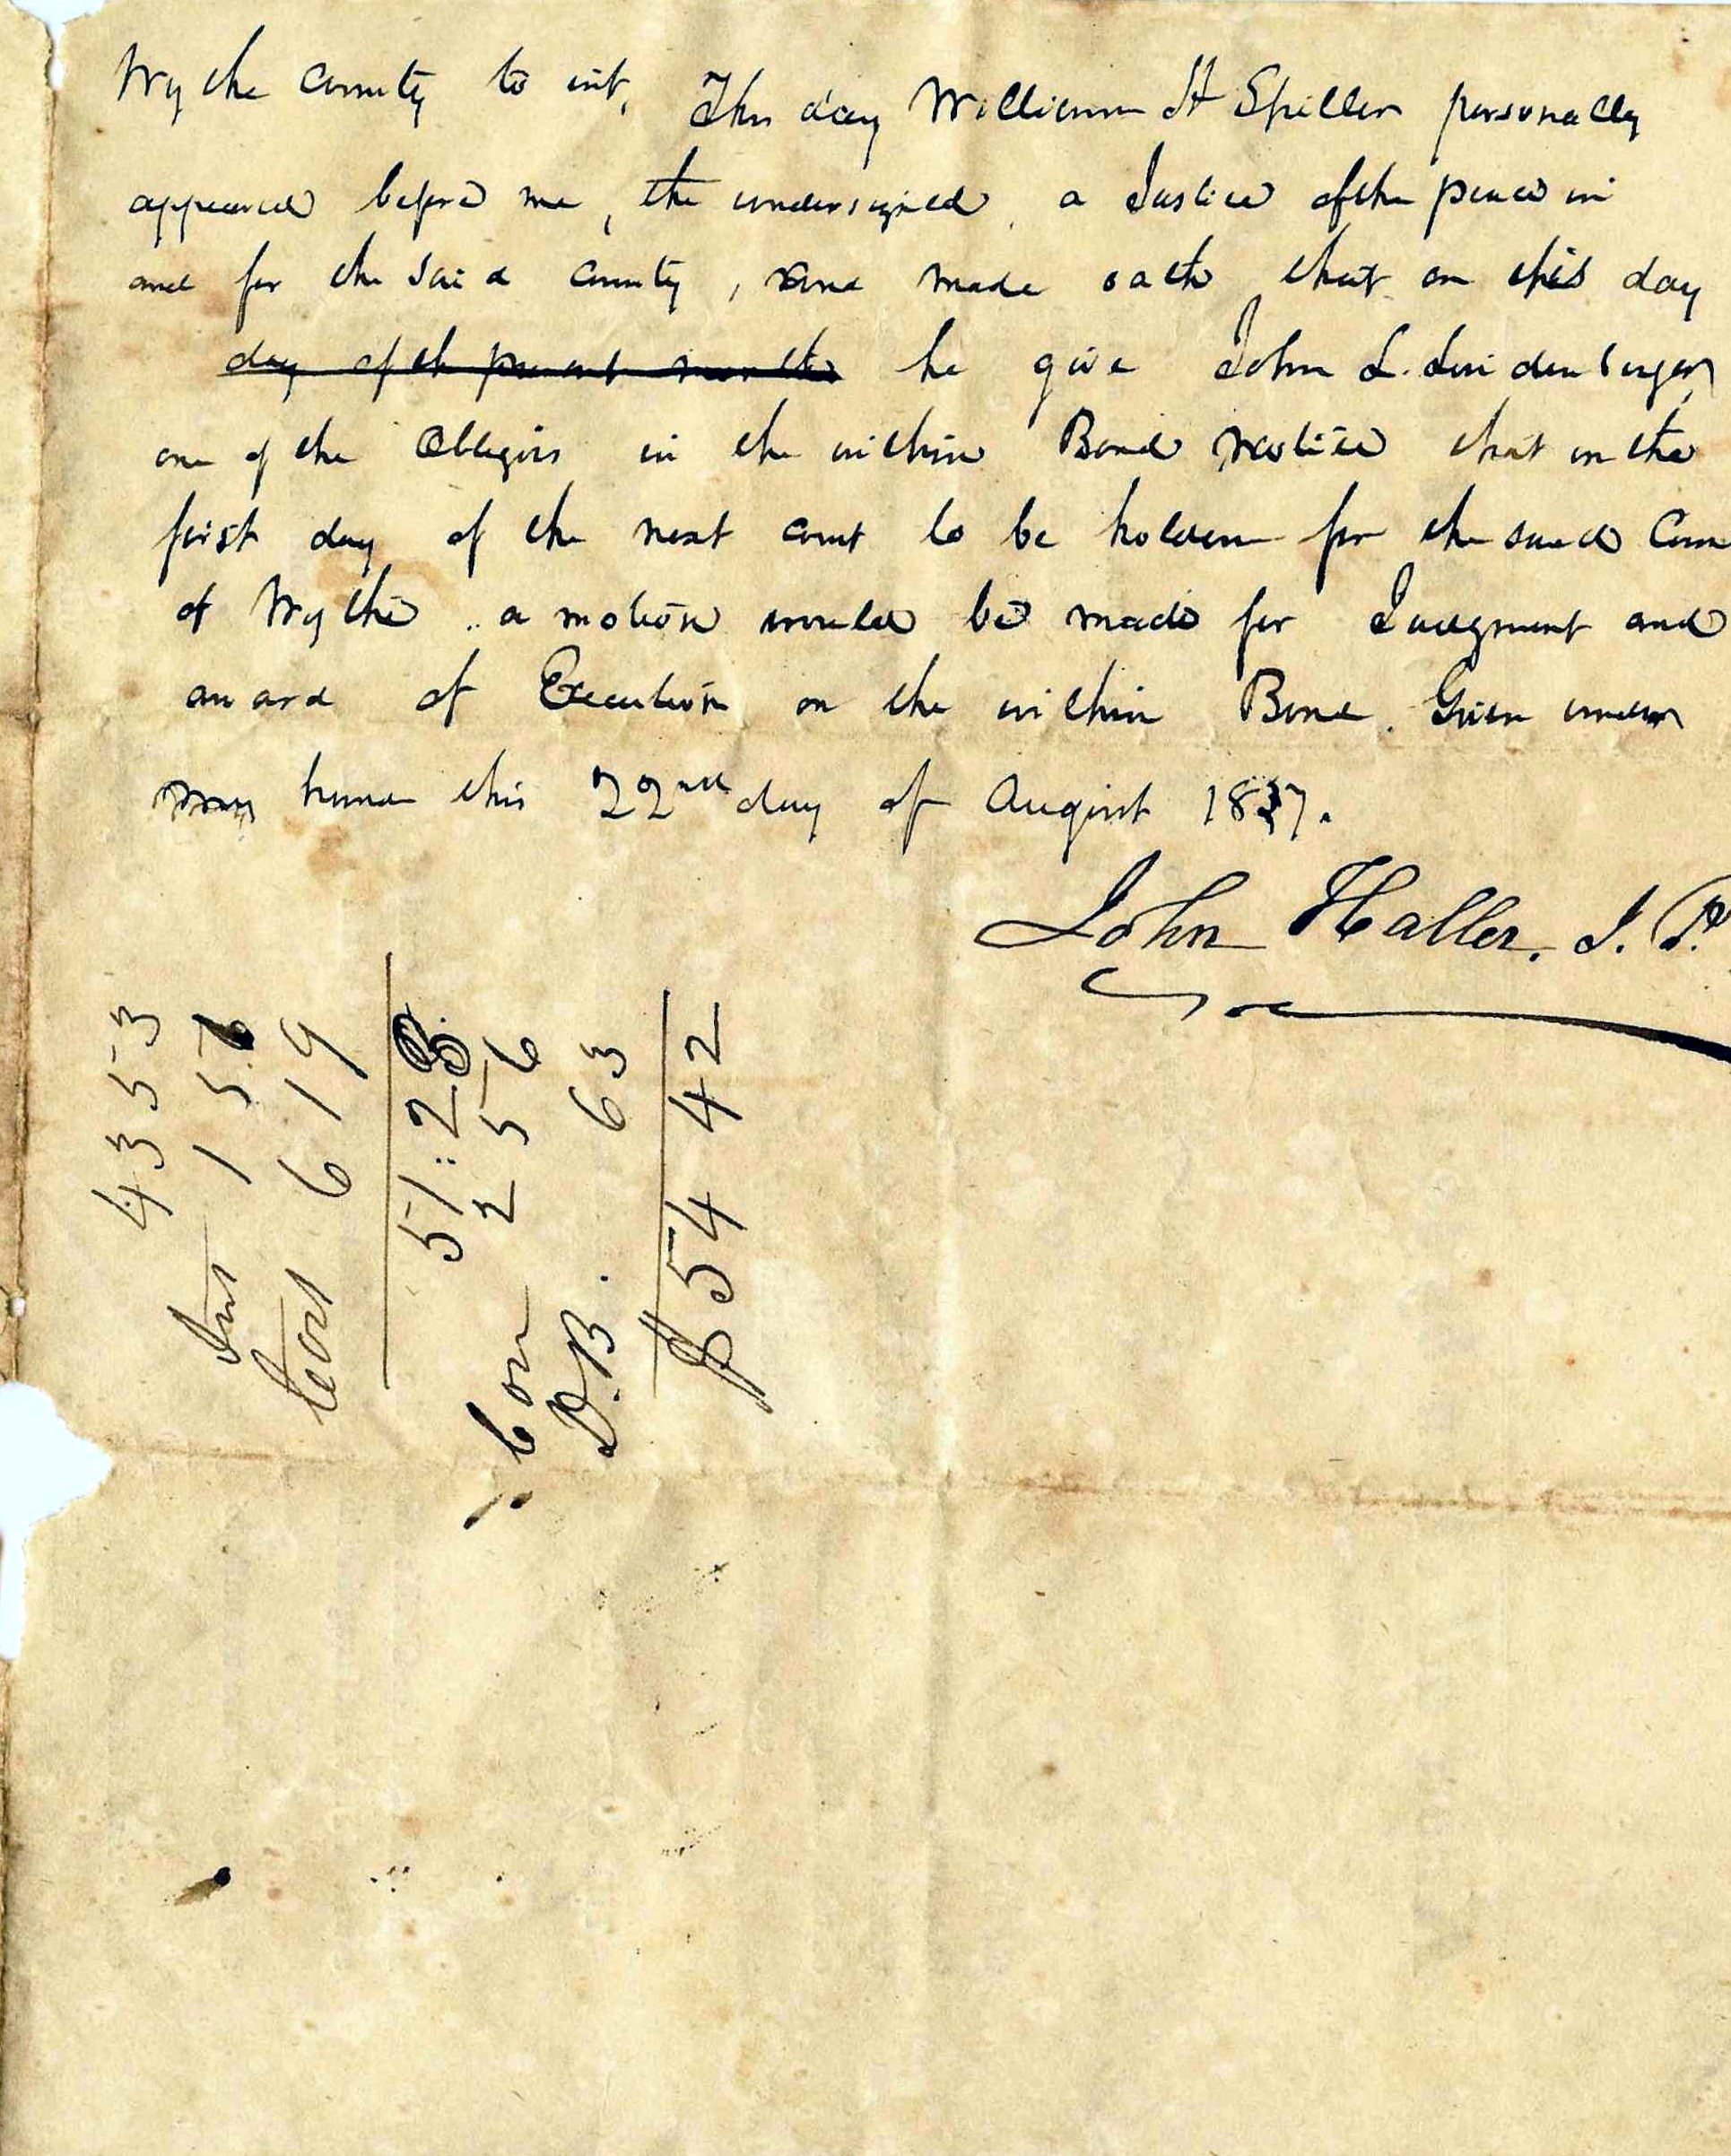 Wythe County to wit, This day William H Spiller personally
appeared before me, the undersigned, a Justice of the peace in
and for the said county, and made oath that on this day
day of the present month he give John L. Lindenberger
one of the Obligors in the within Bond notice that on the
first day of the next court to be holden for the said Coun
of Wythe .. a motion would be made for Judgment and
award of Execution on the within Bond. Given under
my hand this 22nd day of August 1837.
John Haller, J. P.
43 53
Int 1 5
Cost 6 19
51:28
Com 2 56
D.B. 63
$54 42